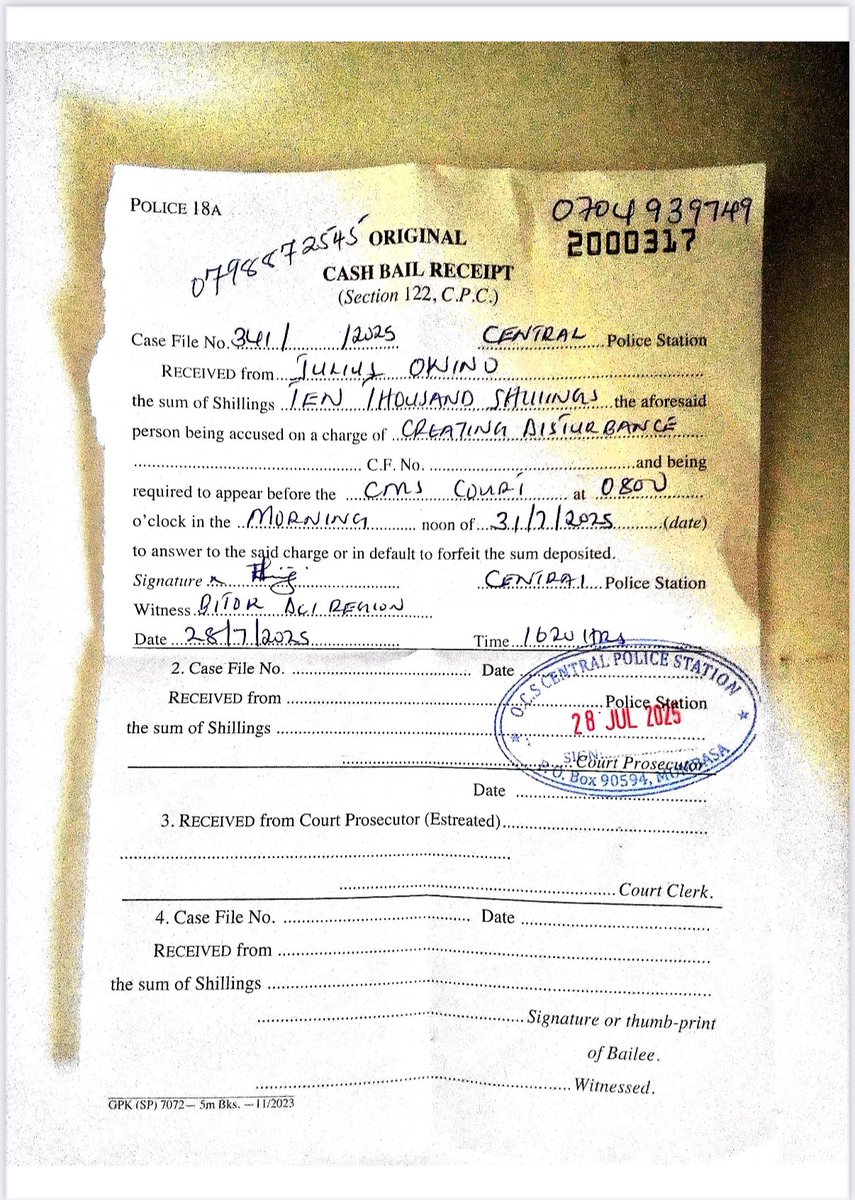 POLICE 18A
0704 939749
2000317
0798872545
ORIGINAL
CASH BAIL RECEIPT
(Section 122, C.P.C.)
Case File No. 341/ /2025 CENTRAL Police Station
RECEIVED from JULIUS OWINO
the sum of Shillings TEN THOUSAND SHILLINGS the aforesaid
person being accused on a charge of CREATING DISTURBANCE
C.F. No. and being
required to appear before the CMS COURT at 0800
o'clock in the MORNING noon of 31/7/2025 (date)
to answer to the said charge or in default to forfeit the sum deposited.
Signature CENTRAL Police Station
Witness DCI REGION
Date 28/7/2025 Time 1620 HRS
2. Case File No. Date
RECEIVED from Police Station
the sum of Shillings
Court Prosecutor
O.C.S CENTRAL POLICE STATION
28 JUL 2025
SIGN:
P.O. Box 90594, MOMBASA
Date
3. RECEIVED from Court Prosecutor (Estreated)
Court Clerk.
4. Case File No. Date
RECEIVED from
the sum of Shillings
Signature or thumb-print
of Bailee.
Witnessed.
GPK (SP) 7072 — 5m Bks. — 11/2023